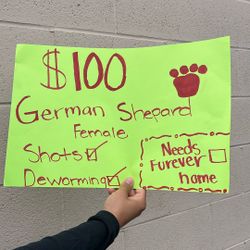 $100
German Shepard
Female
Shots
Deworming
Needs
Furever
home